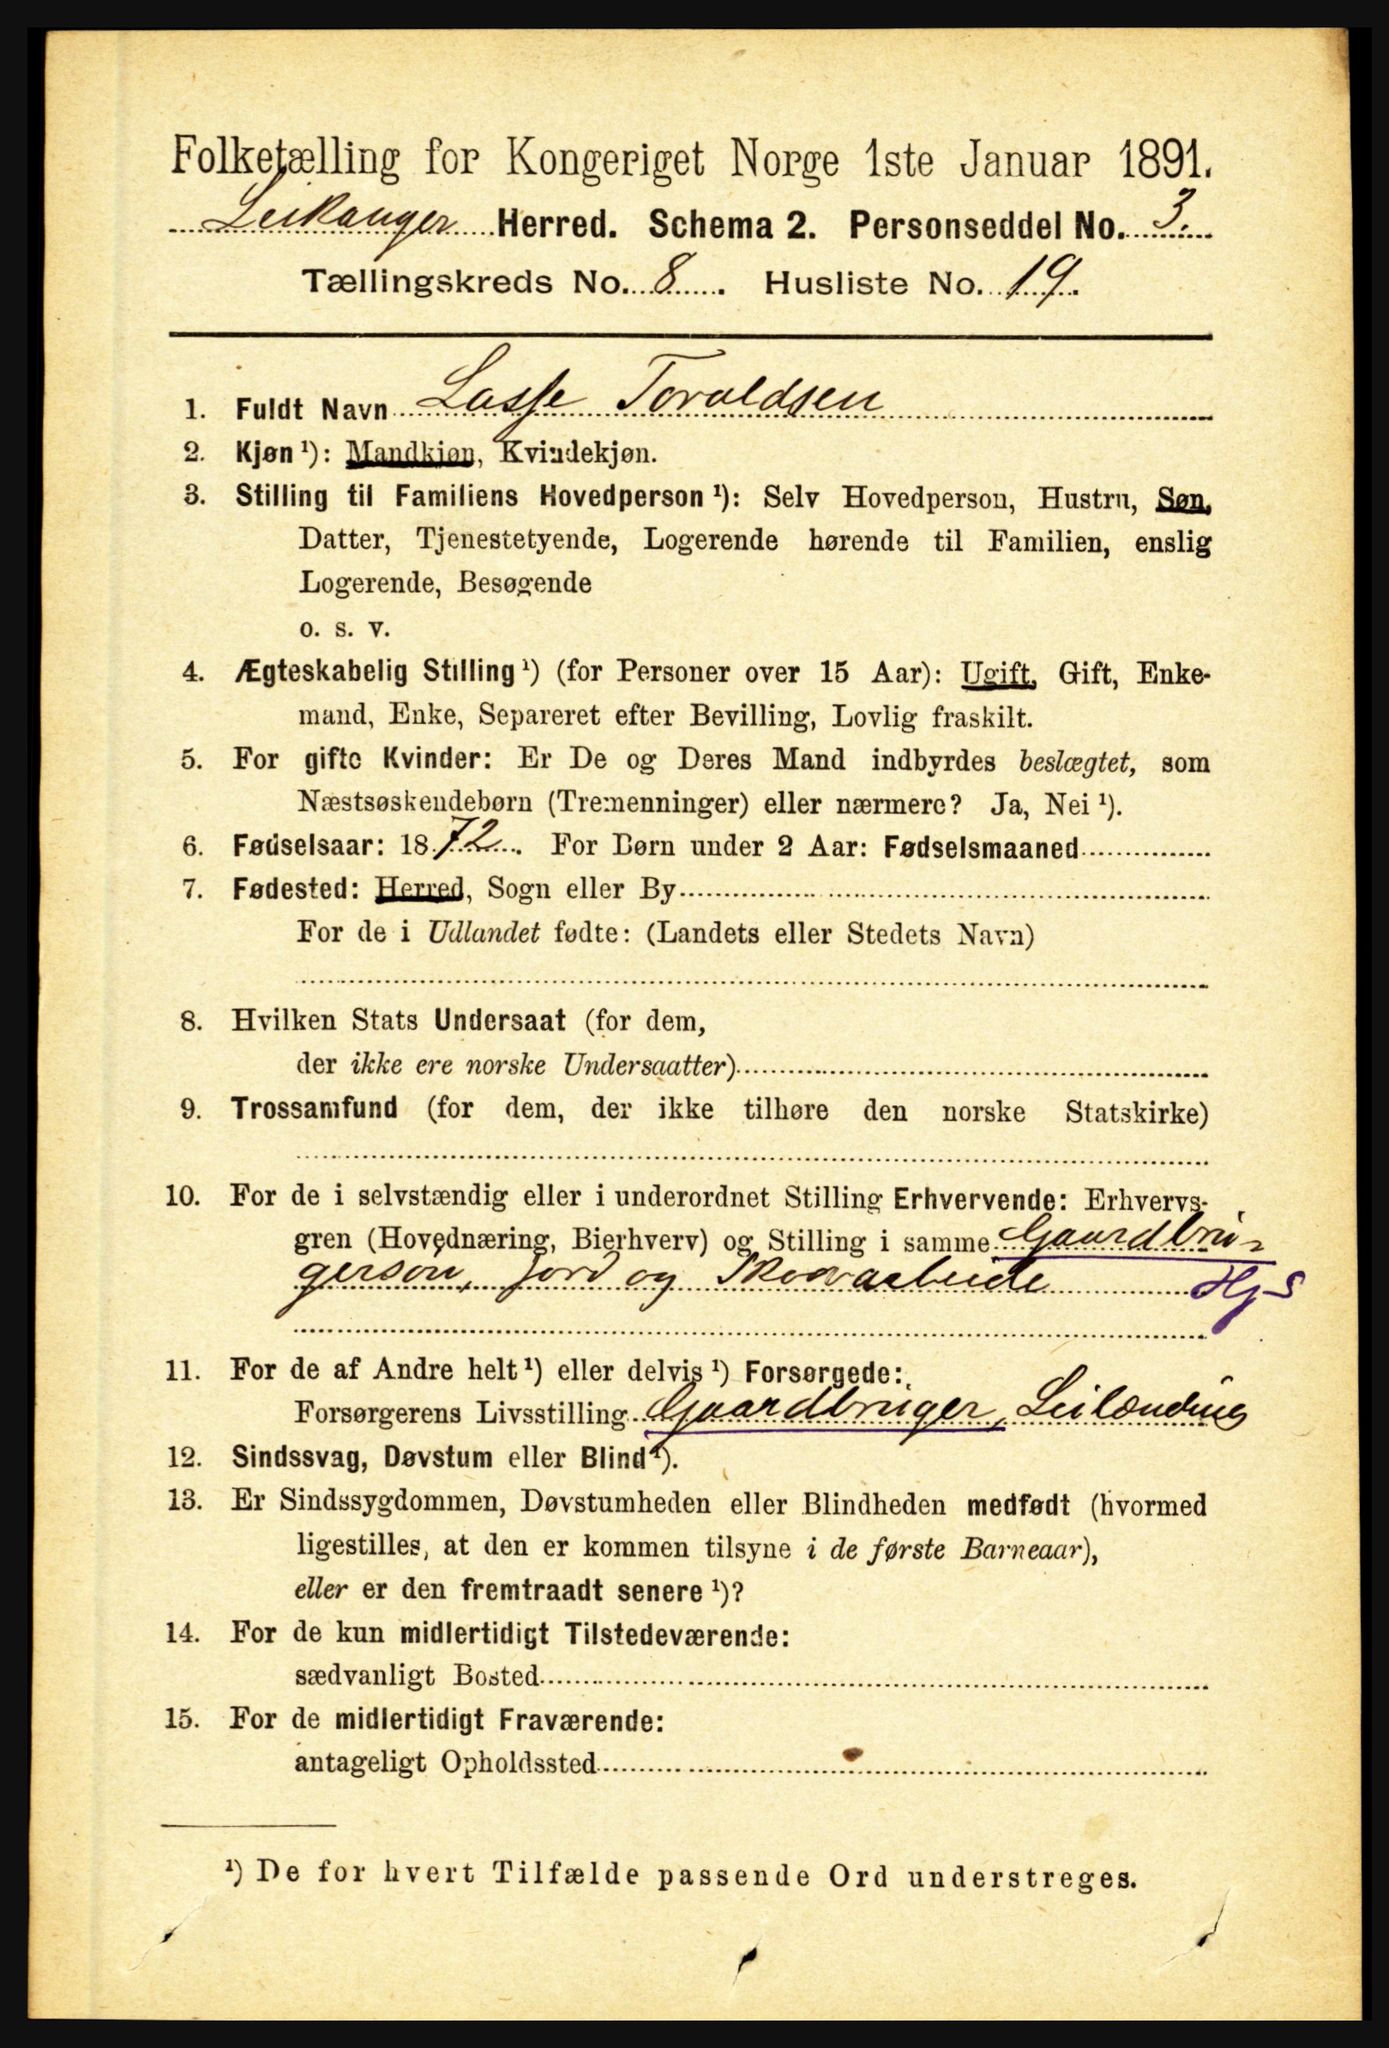 Folketælling for Kongeriget Norge 1ste Januar 1891.
Leikanger Herred. Schema 2. Personseddel No. 3.
Tællingskreds No. 8. Husliste No. 19.
1. Fuldt Navn Lasse Toraldsen
2. Kjøn ¹): Mandkjøn, Kvindekjøn.
3. Stilling til Familiens Hovedperson ¹): Selv Hovedperson, Hustru, Søn,
Datter, Tjenestetyende, Logerende hørende til Familien, enslig
Logerende, Besøgende
o. s. v.
4. Ægteskabelig Stilling ¹) (for Personer over 15 Aar): Ugift, Gift, Enke-
mand, Enke, Separeret efter Bevilling, Lovlig fraskilt.
5. For gifte Kvinder: Er De og Deres Mand indbyrdes beslægtet, som
Næstsøskendebørn (Tremenninger) eller nærmere? Ja, Nei ¹).
6. Fødselsaar: 1872. For Børn under 2 Aar: Fødselsmaaned
7. Fødested: Herred, Sogn eller By
For de i Udlandet fødte: (Landets eller Stedets Navn)
8. Hvilken Stats Undersaat (for dem,
der ikke ere norske Undersaatter)
9. Trossamfund (for dem, der ikke tilhøre den norske Statskirke)
10. For de i selvstændig eller i underordnet Stilling Erhvervende: Erhvervs-
gren (Hovednæring, Bierhverv) og Stilling i samme Gaardbru-
gerson, jord og Skovarbeide HjS
11. For de af Andre helt ¹) eller delvis ¹) Forsørgede:
Forsørgerens Livsstilling Gaardbruger, Leilænding
12. Sindssvag, Døvstum eller Blind ¹).
13. Er Sindssygdommen, Døvstumheden eller Blindheden medfødt (hvormed
ligestilles, at den er kommen tilsyne i de første Barneaar),
eller er den fremtraadt senere ¹)?
14. For de kun midlertidigt Tilstedeværende:
sædvanligt Bosted
15. For de midlertidigt Fraværende:
antageligt Opholdssted
¹) De for hvert Tilfælde passende Ord understreges.